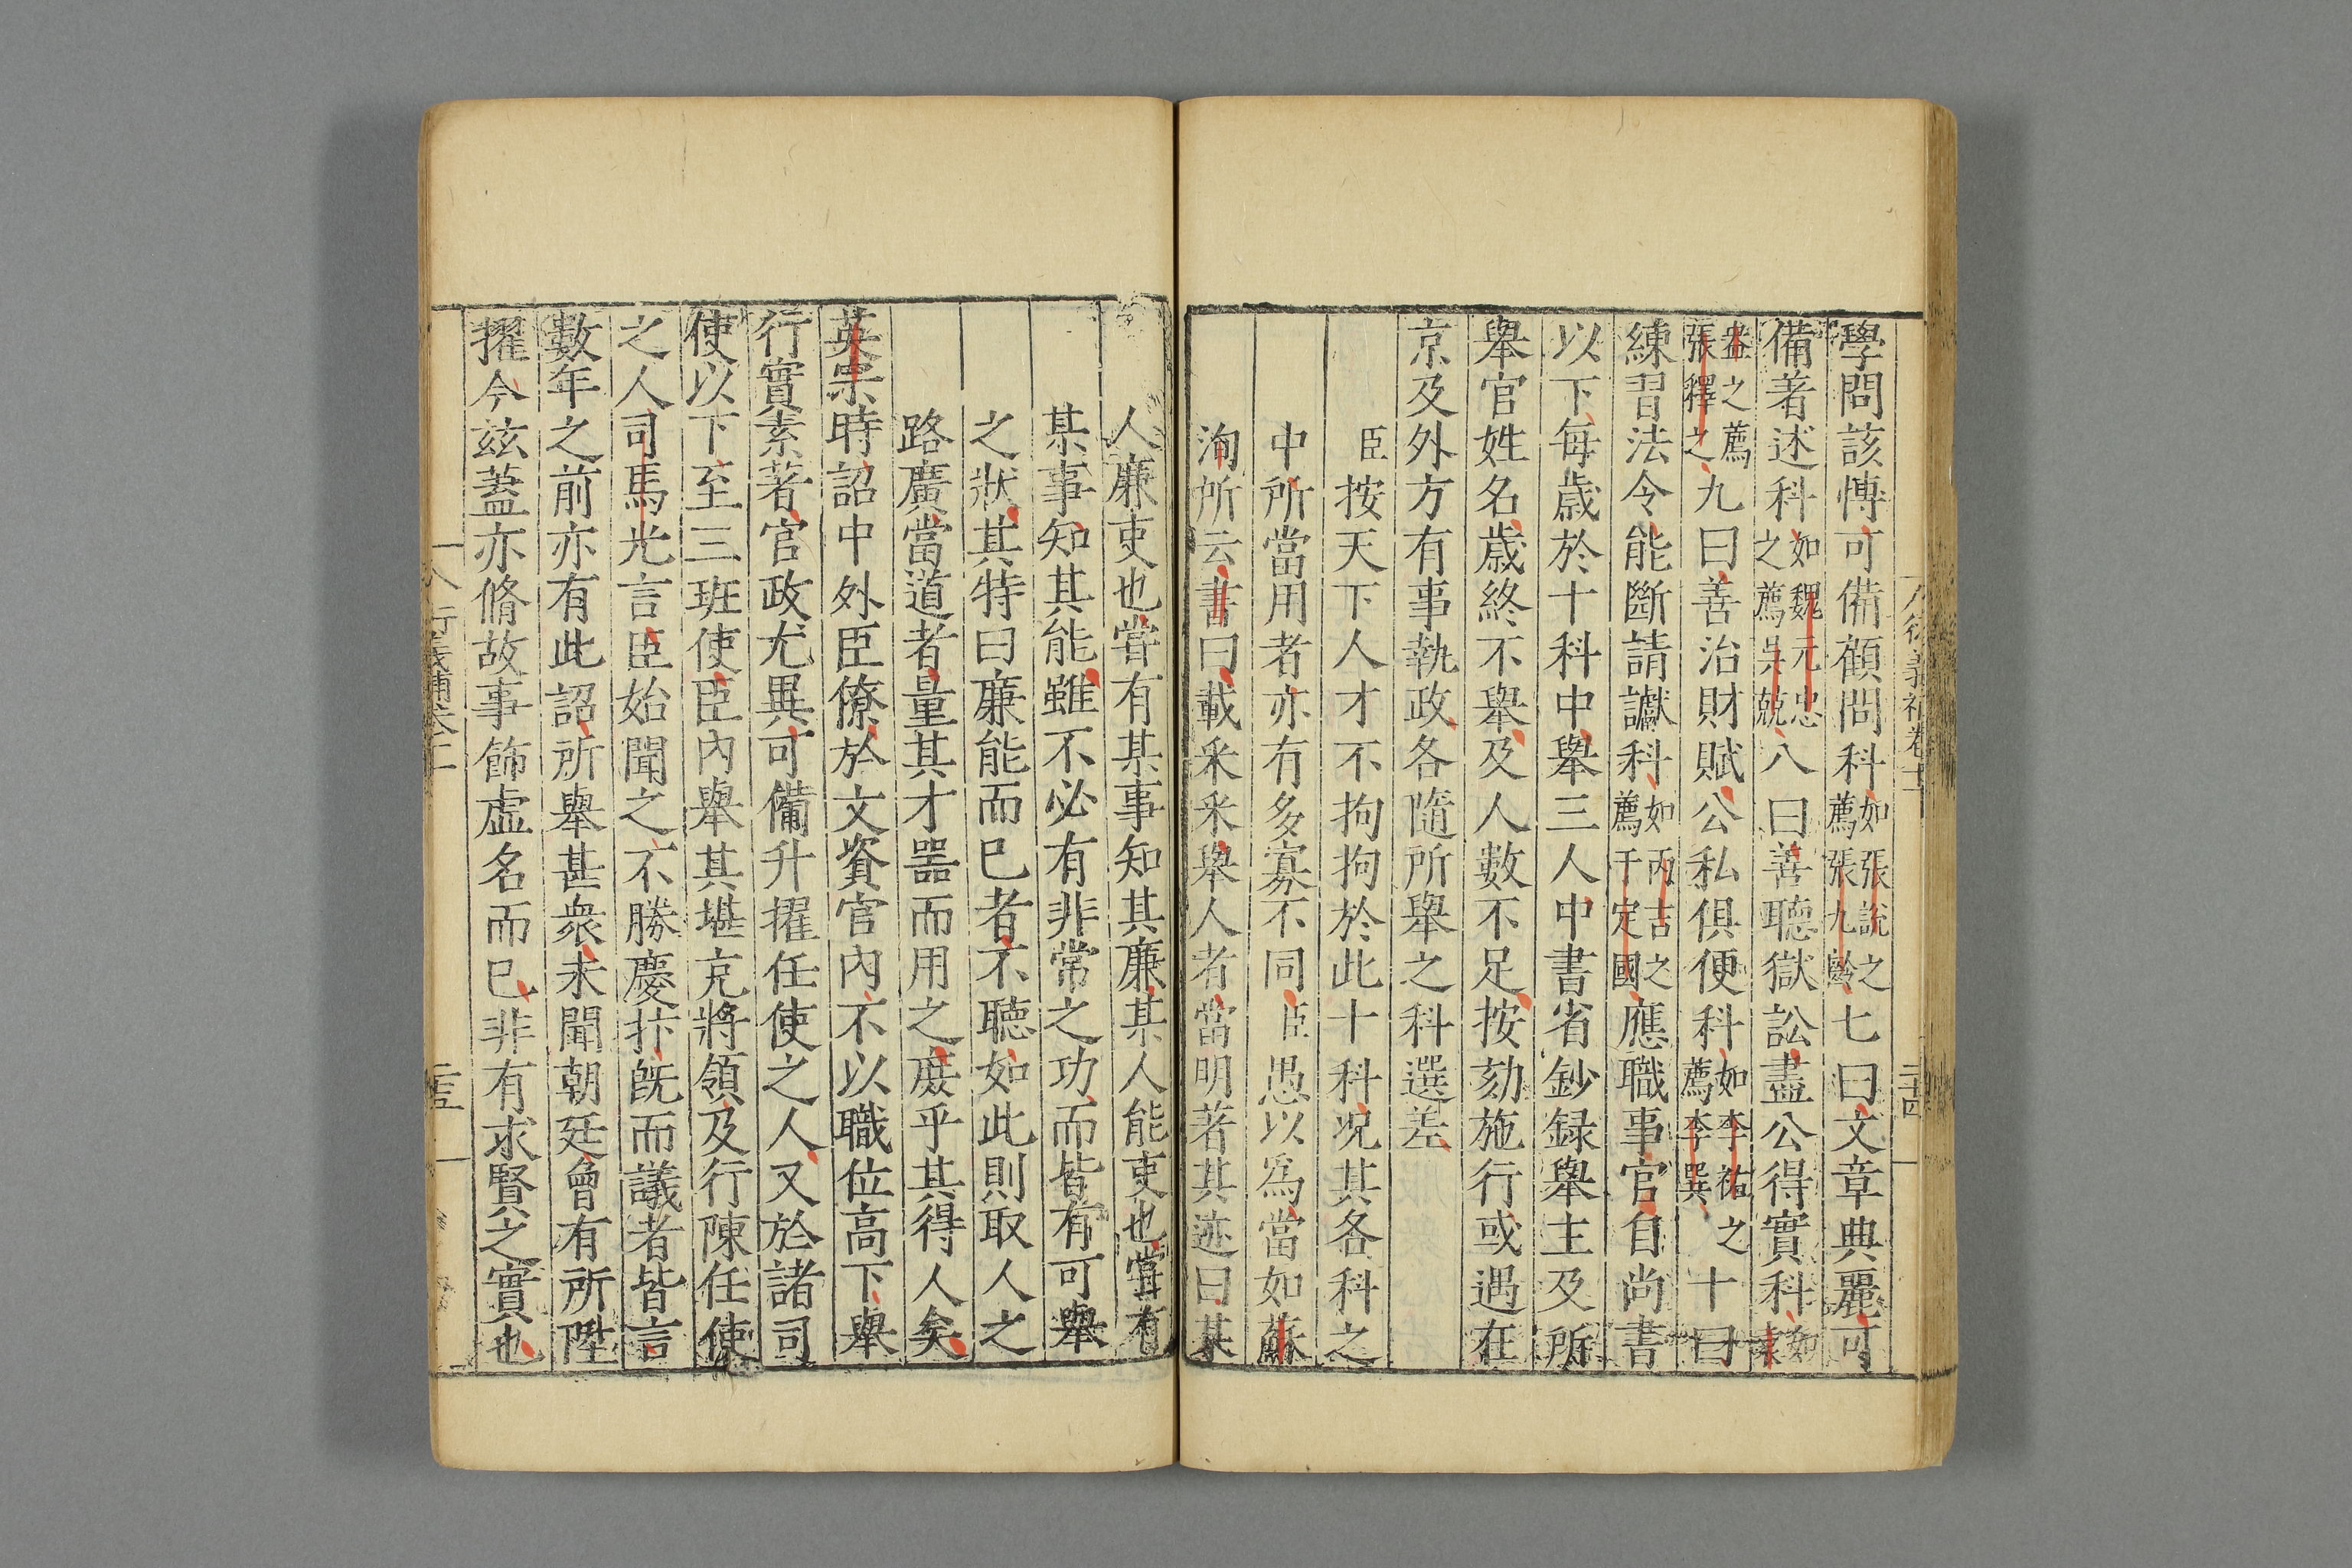 學問該愽可備顧問科如張說之薦張九齡七曰文章典麗可
備著述科如魏元忠之薦吳兢八曰善聽獄訟盡公得實科如袁
盎之薦張釋之九曰善治財賦公私俱便科如李祐之薦李巽十曰
練習法令能斷請讞科如丙吉之薦于定國應職事官自尚書
以下每歲於十科中舉三人中書省鈔録舉主及所
舉官姓名歲終不舉及人數不足按劾施行或遇在
京及外方有事執政各隨所舉之科選差
臣按天下人才不拘拘於此十科况其各科之
中所當用者亦有多寡不同臣愚以爲當如蘇
洵所云書曰載采采舉人者當明著其迹曰某
人廉吏也嘗有某事知其廉某人能吏也嘗有
某事知其能雖不必有非常之功而皆有可舉
之狀其特曰廉能而已者不聽如此則取人之
路廣當道者量其才器而用之庻乎其得人矣
英宗時詔中外臣僚於文資官内不以職位高下舉
行實素著官政尤異可備升擢任使之人又於諸司
使以下至三班使臣內舉其堪充將領及行陳任使
之人司馬光言臣始聞之不勝慶抃既而議者皆言
數年之前亦有此詔所舉甚衆未聞朝廷曾有所陞
擢今兹蓋亦脩故事飾虛名而已非有求賢之實也